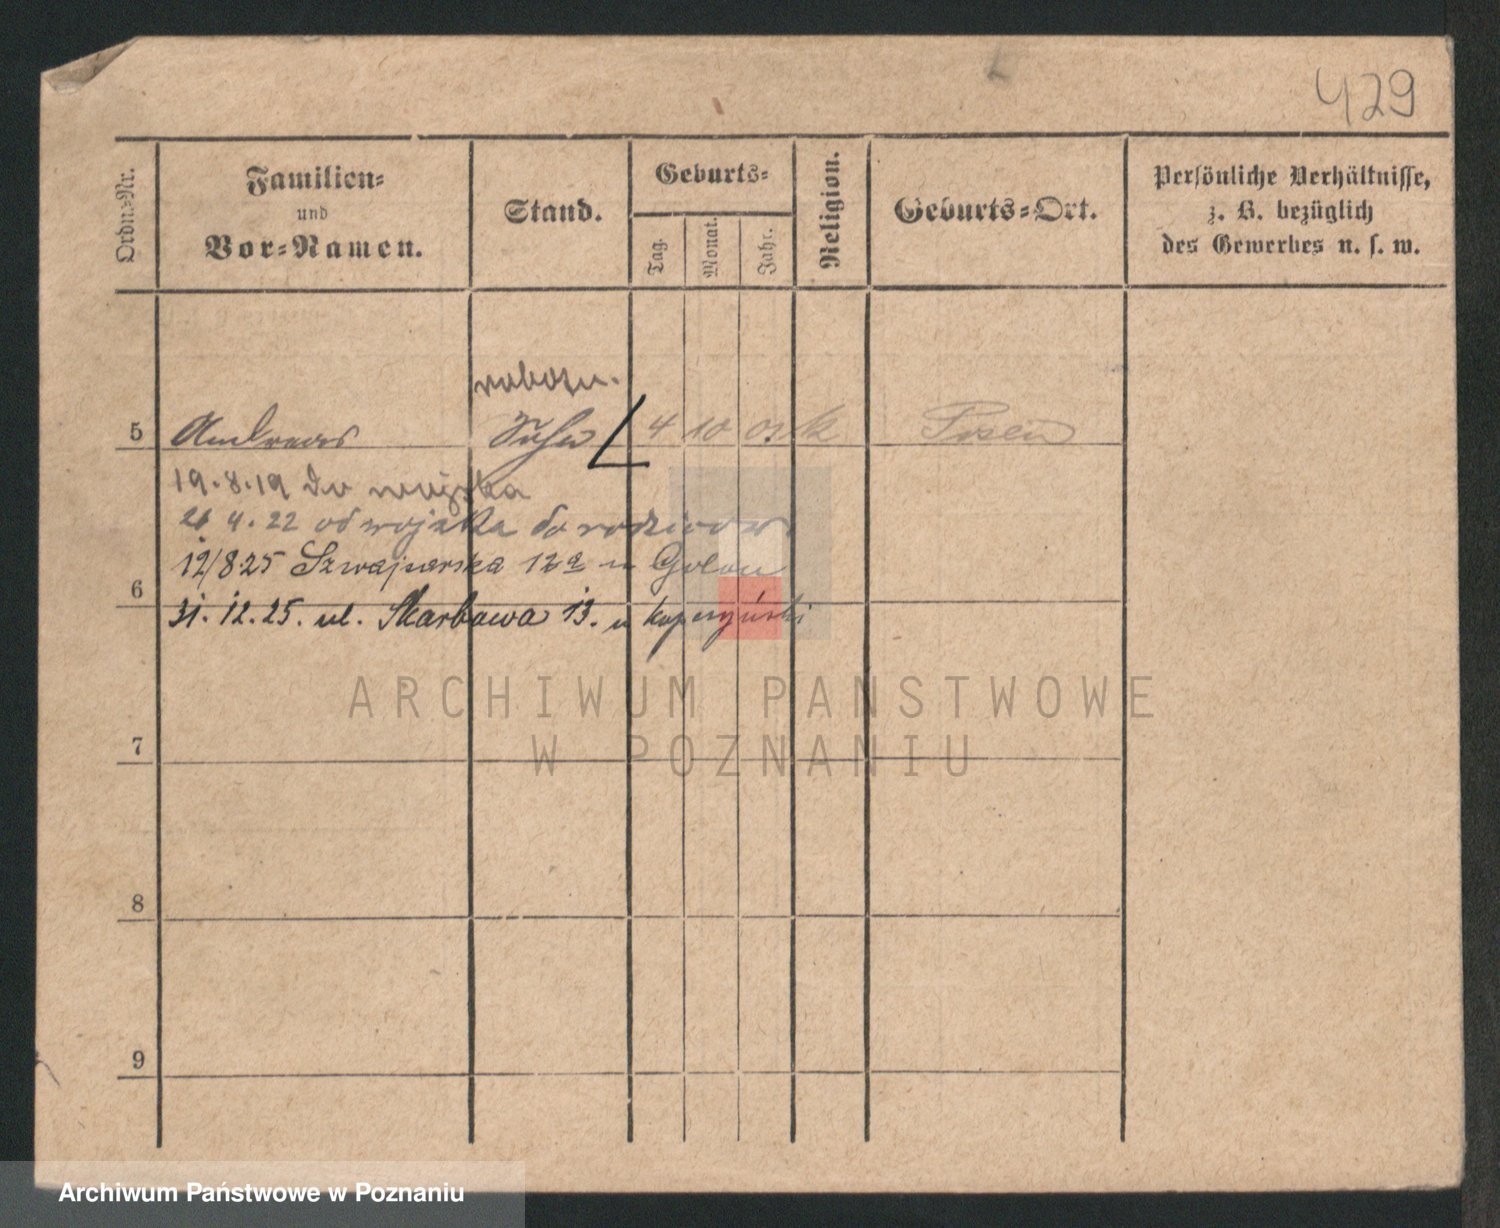 429
Ordn.-Nr.
Familien-
und
Vor-Namen.
Stand.
Geburts-
Tag.
Monat.
Jahr.
Religion.
Geburts-Ort.
Persönliche Verhältnisse,
z. B. bezüglich
des Gewerbes u. s. w.
robotn.
5 Andreas Sohn 4 10 01 k Posen
19.8.19 do wojska
4.22 od wojska do rodziców
12/8.25 Szwajcarska 12a u
6
31.12.25. ul. Skarbowa 13. u Kopczyński
ARCHIWUM PANSTWOWE
W POZNANIU
7
8
9
Archiwum Państwowe w Poznaniu